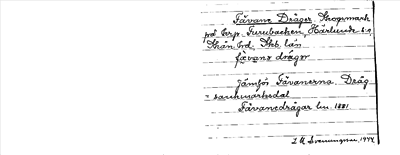 Fåvane Drågar, Skogsmark
på torp Furubacken, Härlunda sn,
Skån. brd. Skb. län
fåvans drågar
Jämför Fåvanerna. Dråg
= sankmarksdal
Fåvanedrågar lm. 1881.
1944